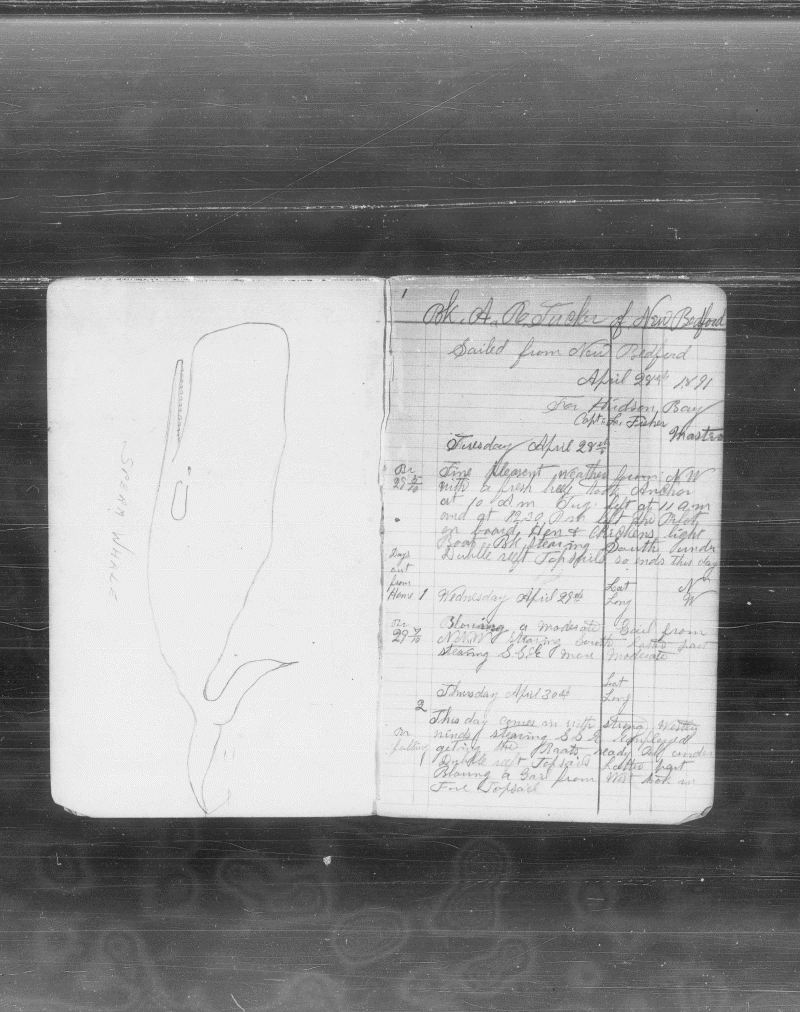 SPERM WHALE
1
Bk. A. R. Tucker of New Bedford
Sailed from New Bedford
April 28th 1891
For Hudson Bay
Capt. Fisher
Master
Tuesday April 28th
Fine Pleasent weather from NW
with a fresh
at 10 A.m. Tug left at 11 a.m
and at 12.30 P.m left the Pilot
on board, Hen & Chickens light
Boat, Bk stearing South under
Duble reeft Topsails so ends this day
Days
out
from
Home 1
Wednesday April 29th
Lat N
Long W
Blowing a moderate Gail from
N.N.W. Stearing South Last
stearing S.S.E more moderate
Thursday April 30th
Lat
Long
2
This day comes in with strong
winds stearing S S E employed
geting the Boats ready under
Duble reeft Topsails Latter part
Blowing a Gail from West took in
Fore Topsail
Br
falling